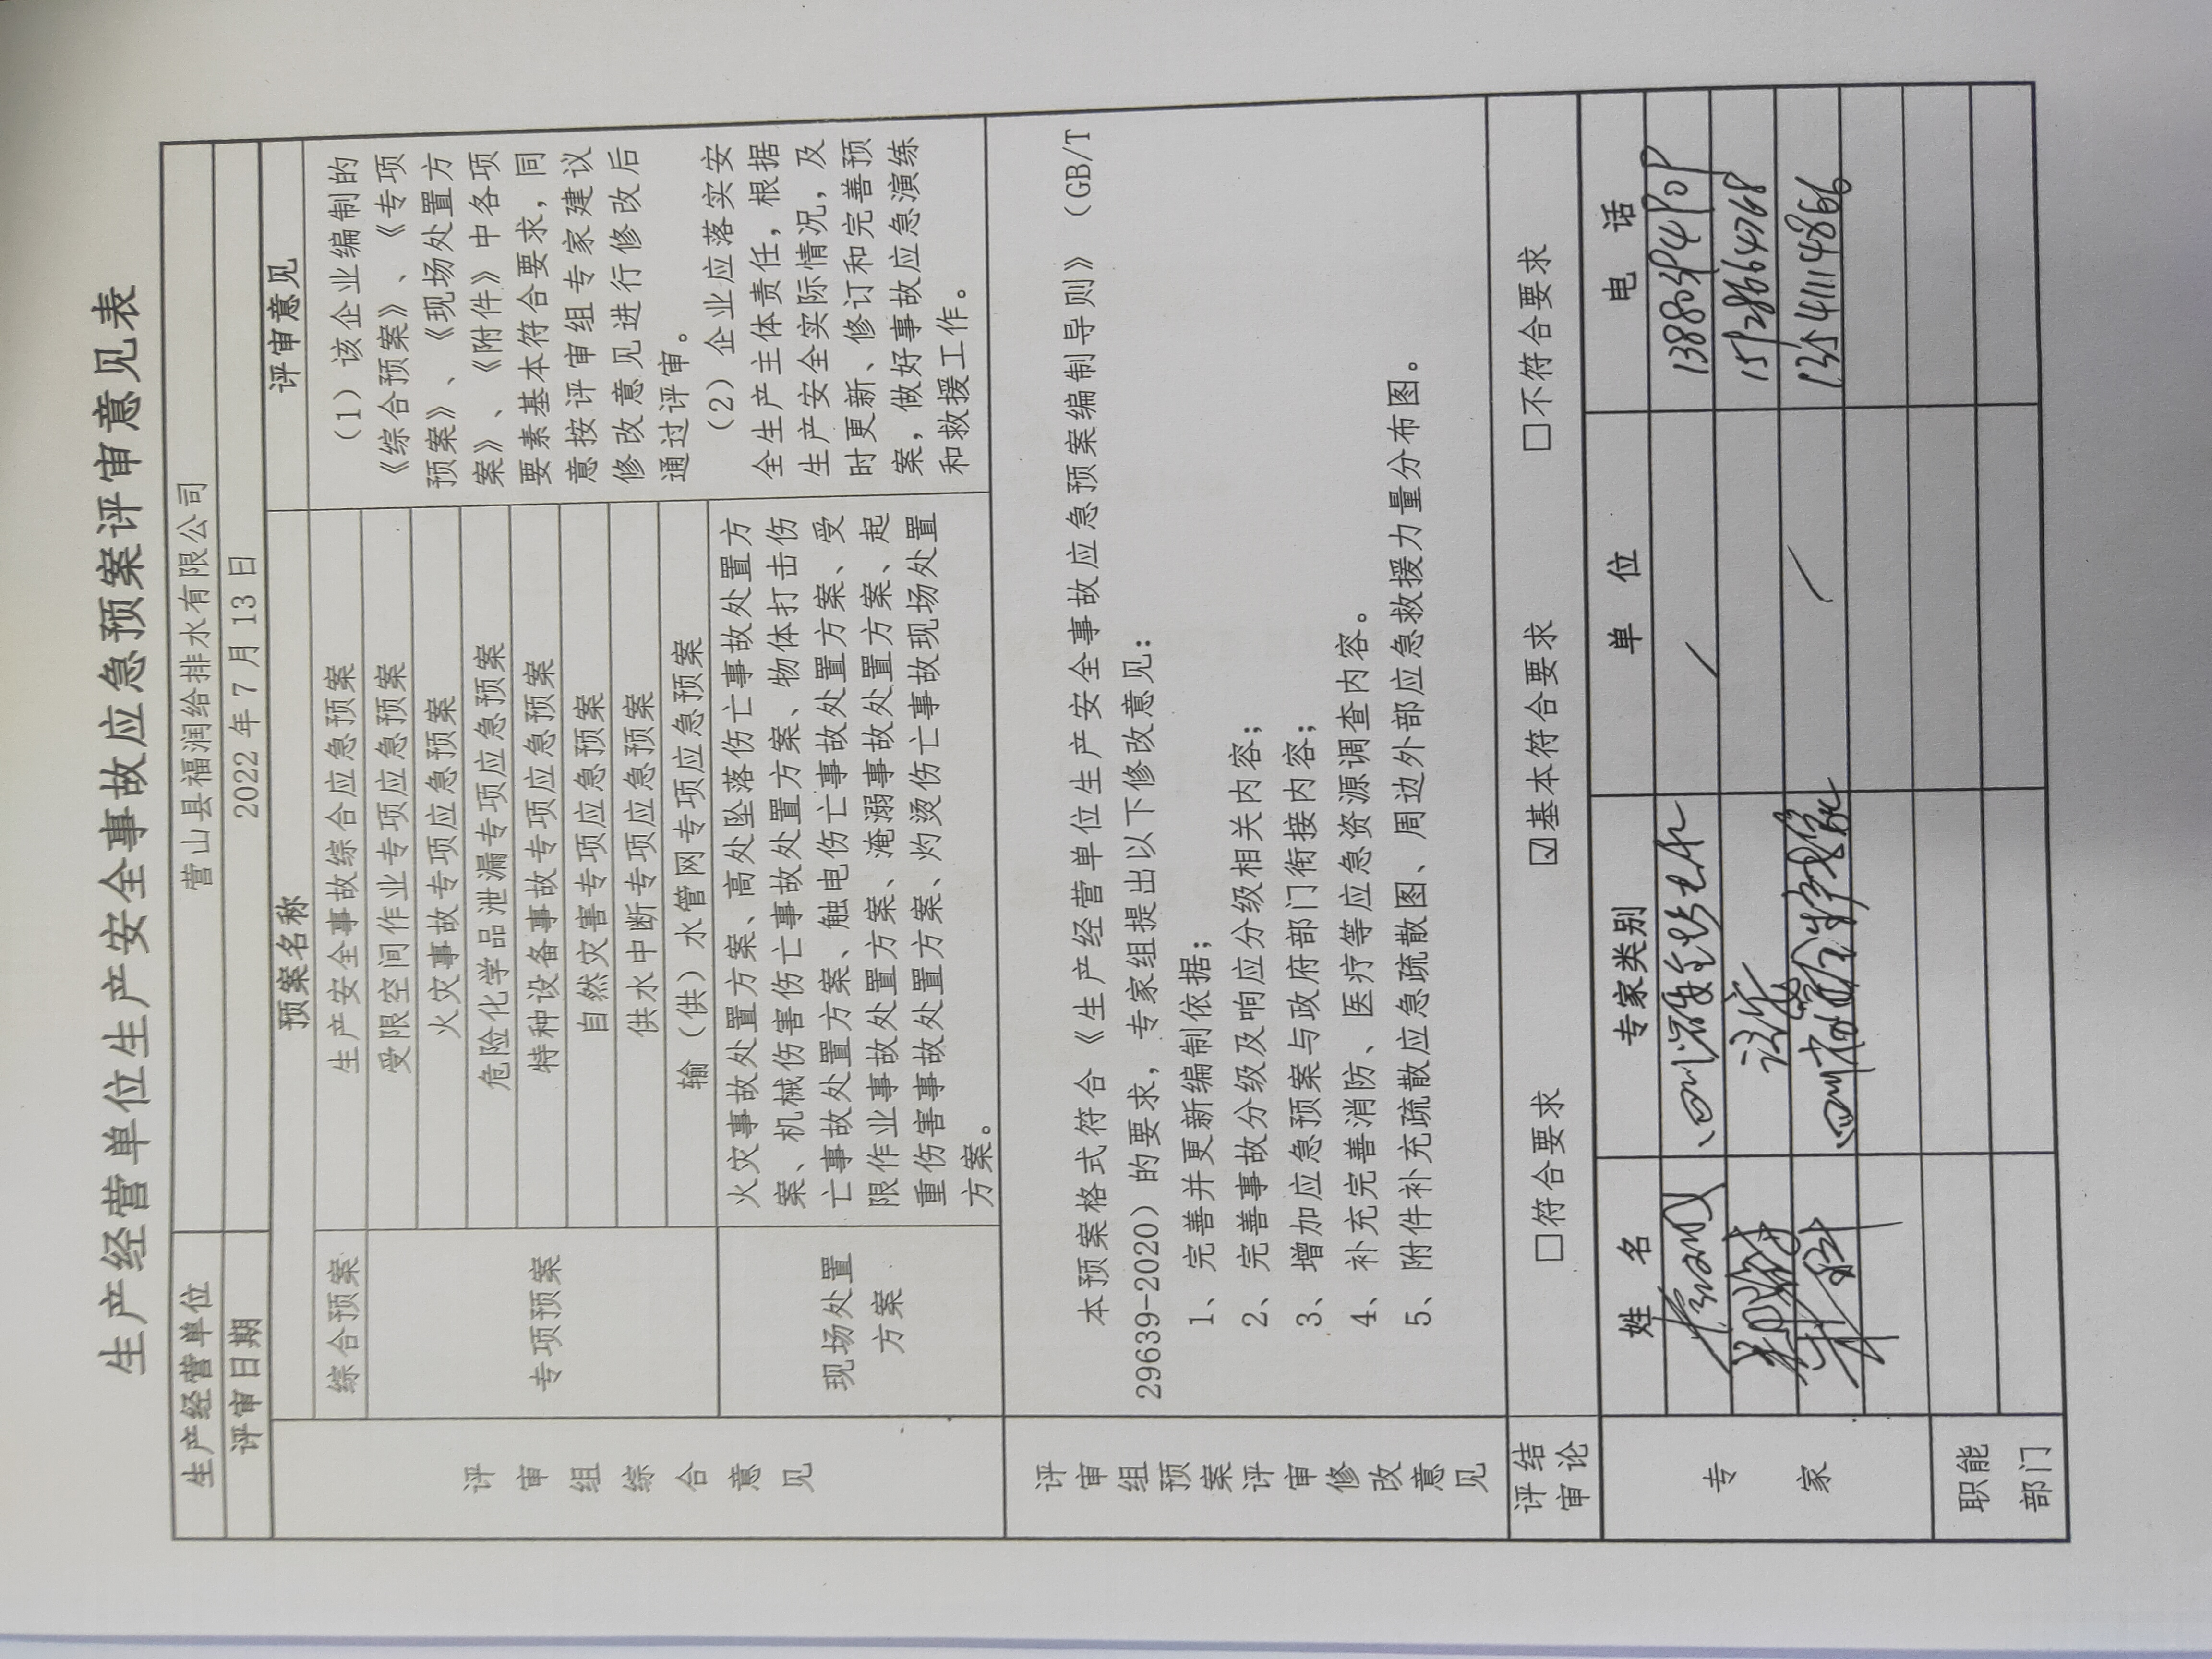 生产经营单位生产安全事故应急预案评审意见表
生产经营单位 营山县福润给排水有限公司
评审日期 2022年7月13日
预案名称 评审意见
评审组综合意见
综合预案 生产安全事故综合应急预案
专项预案
受限空间作业专项应急预案
火灾事故专项应急预案
危险化学品泄漏专项应急预案
特种设备事故专项应急预案
自然灾害专项应急预案
供水中断专项应急预案
输（供）水管网专项应急预案
现场处置
方案
火灾事故处置方案、高处坠落伤亡事故处置方
案、机械伤害伤亡事故处置方案、物体打击伤
亡事故处置方案、触电伤亡事故处置方案、受
限作业事故处置方案、淹溺事故处置方案、起
重伤害事故处置方案、灼烫伤亡事故现场处置
方案。
（1）该企业编制的
《综合预案》、《专项
预案》、《现场处置方
案》、《附件》中各项
要素基本符合要求，同
意按评审组专家建议
修改意见进行修改后
通过评审。
（2）企业应落实安
全生产主体责任，根据
生产安全实际情况，及
时更新、修订和完善预
案，做好事故应急演练
和救援工作。
评审组预案评审修改意见
本预案格式符合《生产经营单位生产安全事故应急预案编制导则》（GB/T
29639-2020）的要求，专家组提出以下修改意见：
1、完善并更新编制依据；
2、完善事故分级及响应分级相关内容；
3、增加应急预案与政府部门衔接内容；
4、补充完善消防、医疗等应急资源调查内容。
5、附件补充疏散应急疏散图、周边外部应急救援力量分布图。
评审结论
□符合要求 ☑基本符合要求 □不符合要求
专家
姓名 专家类别 单位 电话
15128664768
职能
部门